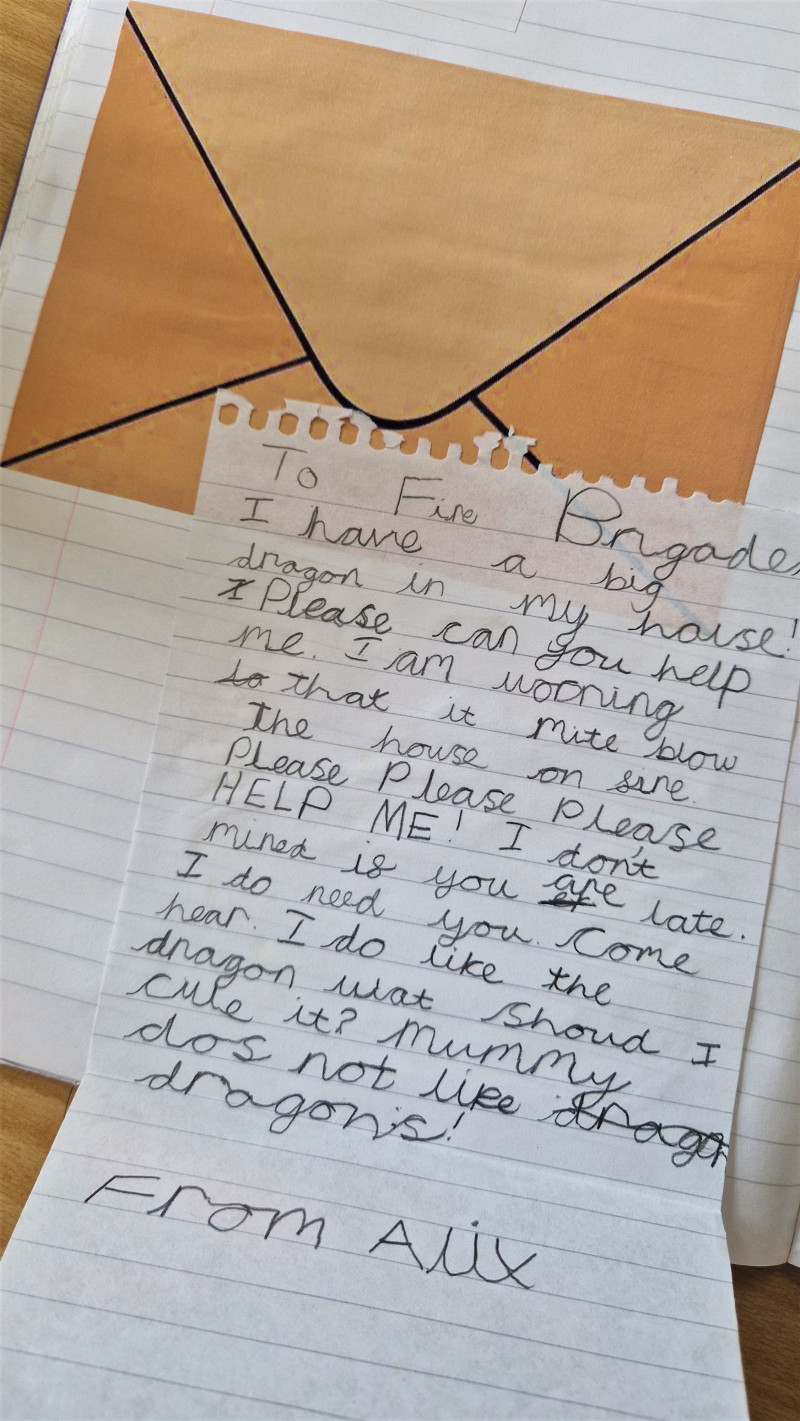 To Fire Brigade,
I have a big
dragon in my house!
Please can you help
me. I am worring
that it mite blow
The house on fire.
Please Please Please
HELP ME! I don't
mined is you are late.
I do need you. Come
hear. I do like the
dragon wat shoud I
cule it? Mummy
dos not like
dragons!
From Alix